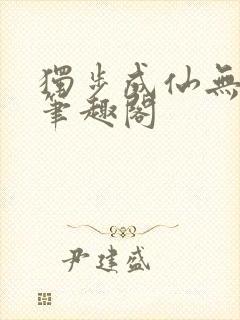 獨步成仙無
筆趣閣
尹建盛